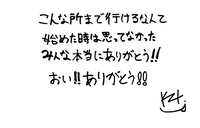 こんな所まで行けるなんて
始めた時は思ってなかった
みんな本当にありがとう!!
おい!!ありがとう!!